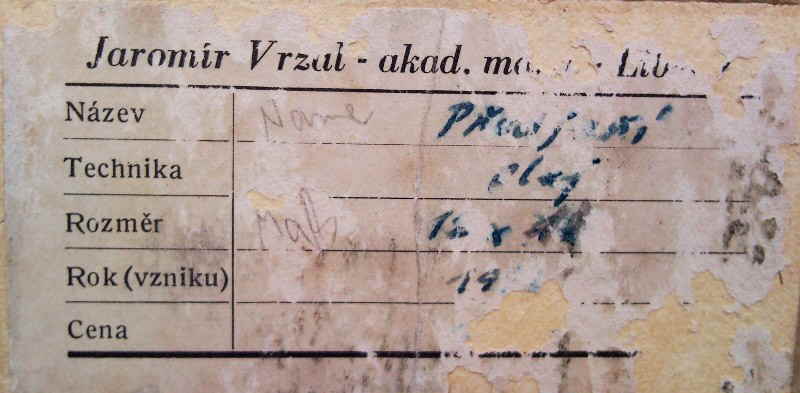 Jaromír Vrzal - akad.
Název Name Předjaří
Technika olej
Rozměr Maß
Rok (vzniku)
Cena